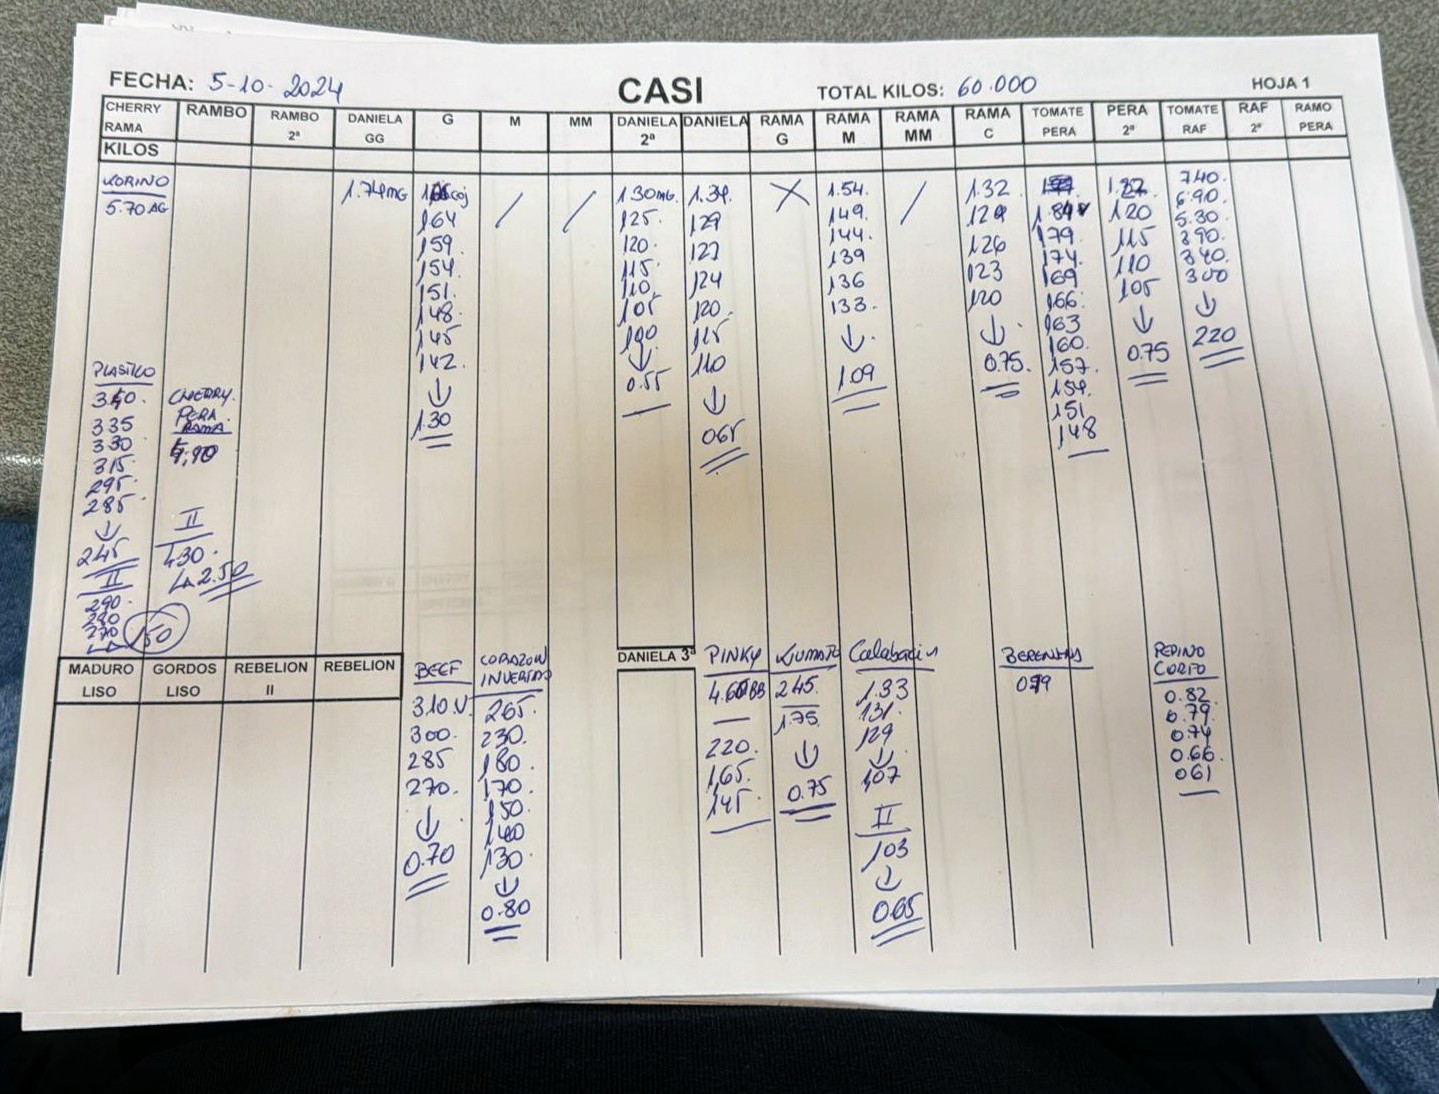 FECHA: 5-10-2024 CASI TOTAL KILOS: 60.000 HOJA 1
CHERRY RAMA
RAMBO
RAMBO 2ª
DANIELA GG
G
M
MM
DANIELA 2ª
DANIELA
RAMA G
RAMA M
RAMA MM
RAMA C
TOMATE PERA
PERA 2ª
TOMATE RAF
RAF 2ª
RAMO PERA
KILOS
KORINO
5.70 AG
PLASTICO
335
330
315
295
285
↓
245
II
290
280
270
150
CHERRY
PERA
RAMA
II
430
↳ 2.50
1.74 MG
164
159
154
151
148
145
142
↓
1.30
/
/
130 MG
125
120
115
110
105
100
↓
0.55
1.34
129
127
124
120
115
110
↓
065
X
1.54
149
144
139
136
133
↓
1.09
/
1.32
129
126
123
120
↓
0.75
1.84
179
174
169
166
163
160
157
154
151
148
120
115
110
105
↓
0.75
740
6.90
5.30
390
340
300
↓
220
MADURO LISO
GORDOS LISO
REBELION II
REBELION
BEEF
310 V
300
285
270
↓
0.70
CORAZON
INVERTIDO
265
230
180
170
150
140
130
↓
0.80
DANIELA 3ª
PINKY
220
165
145
KUMATO
245
1.75
↓
0.75
Calabacin
1.33
131
129
↓
107
II
103
↓
065
BERENJENAS
PEPINO
CORTO
0.82
0.79
0.74
0.66
061